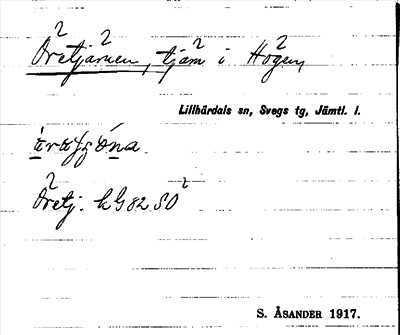 Öretjärnen, tjärn i Hogen
Lillhärdals sn, Svegs tg, Jämtl. l.
Öretj. k G 82 SO
S. ÅSANDER 1917.